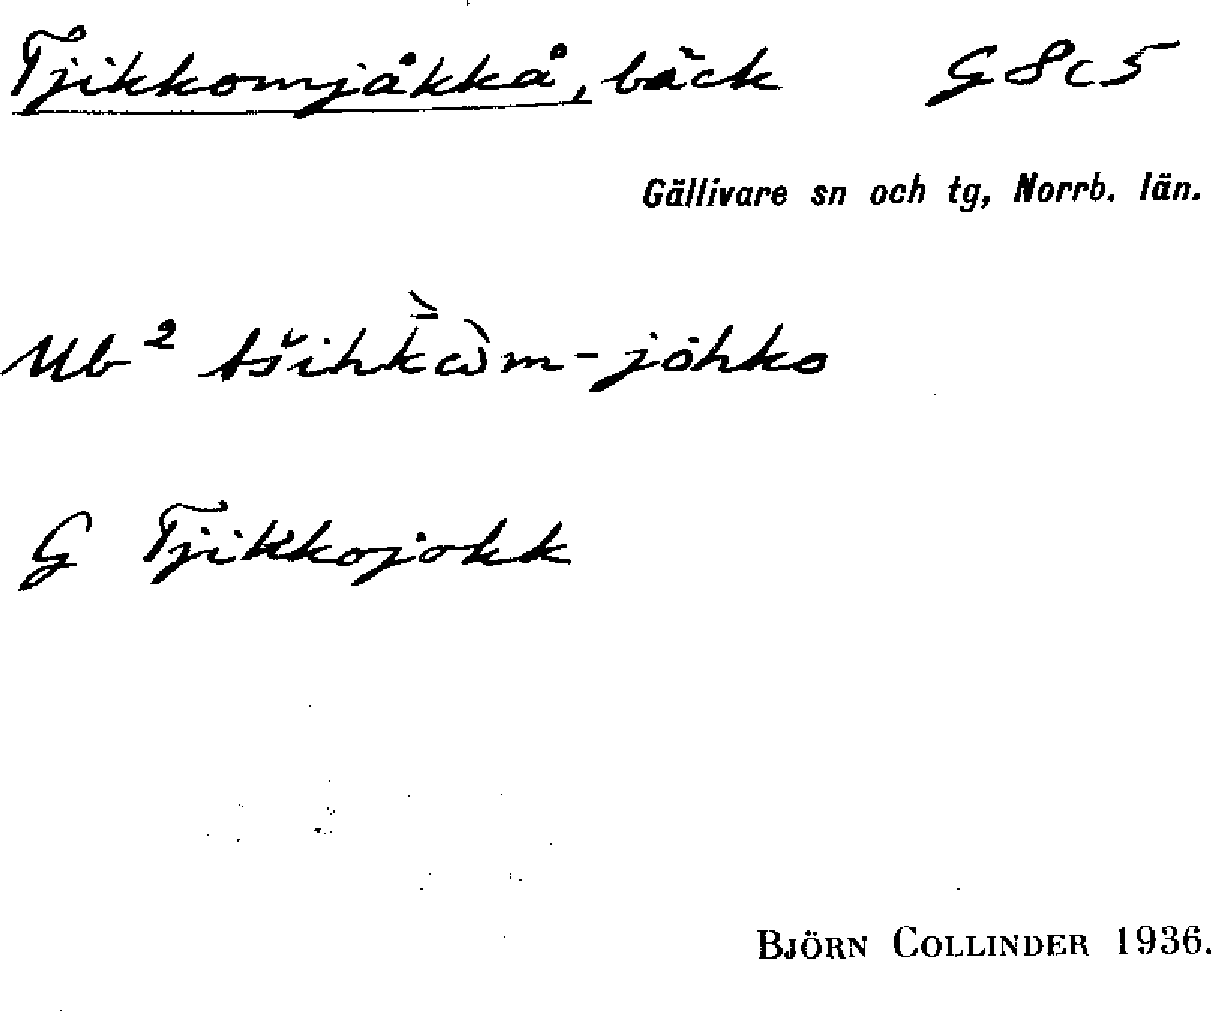 Tjikkomjåkkå, bäck G8c5
Gällivare sn och tg, Norrb. län.
Ub² tšihkὼm-johko
G Tjikkojokk
BJÖRN COLLINDER 1936.